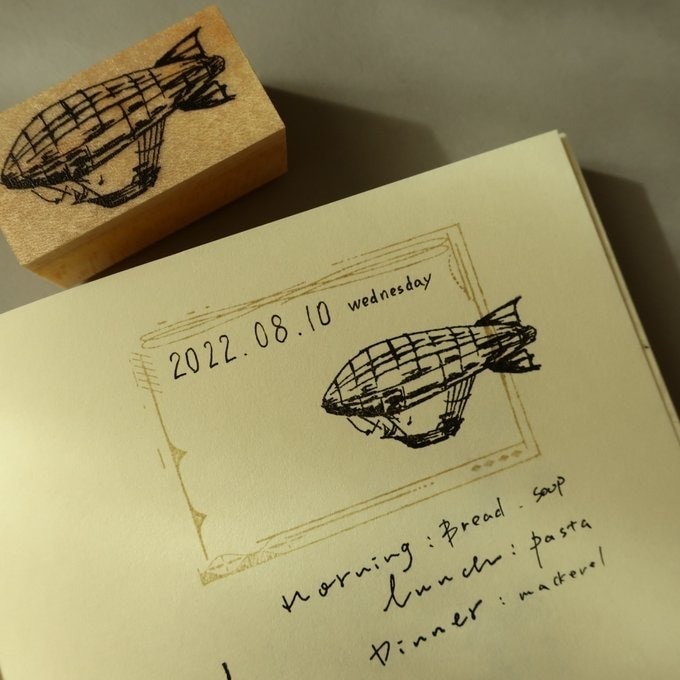 2022.08.10 wednesday
Morning : Bread . soup
lunch : pasta
Dinner : mackerel